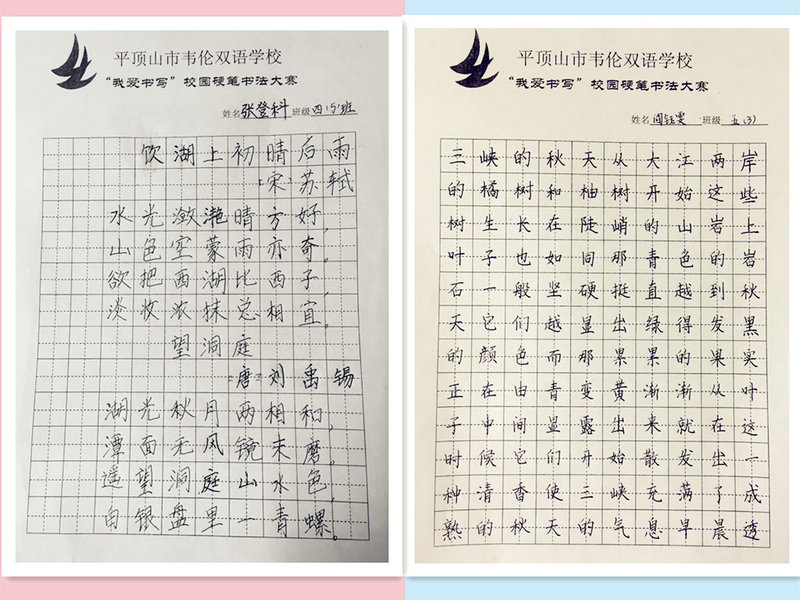 平顶山市韦伦双语学校
“我爱书写”校园硬笔书法大赛
姓名 张登科 班级 四（5）班
饮湖上初晴后雨
［宋］苏轼
水光潋滟晴方好，
山色空蒙雨亦奇。
欲把西湖比西子，
淡妆浓抹总相宜。
望洞庭
唐 刘禹锡
湖光秋月两相和，
潭面无风镜未磨。
遥望洞庭山水色，
白银盘里一青螺。
平顶山市韦伦双语学校
“我爱书写”校园硬笔书法大赛
姓名 班级 五（3）
三峡的秋天从大江两岸
的橘树和柚树开始这些
树生长在陡峭的山岩上
叶子也如同那青色的岩
石一般坚硬挺直越到秋
天它们越显出绿得发黑
的颜色而那累累的果实
正在由青变黄渐渐从叶
子中间显露出来就在这
时候它们开始散发出一
种清香使三峡充满了成
熟的秋天的气息早晨透